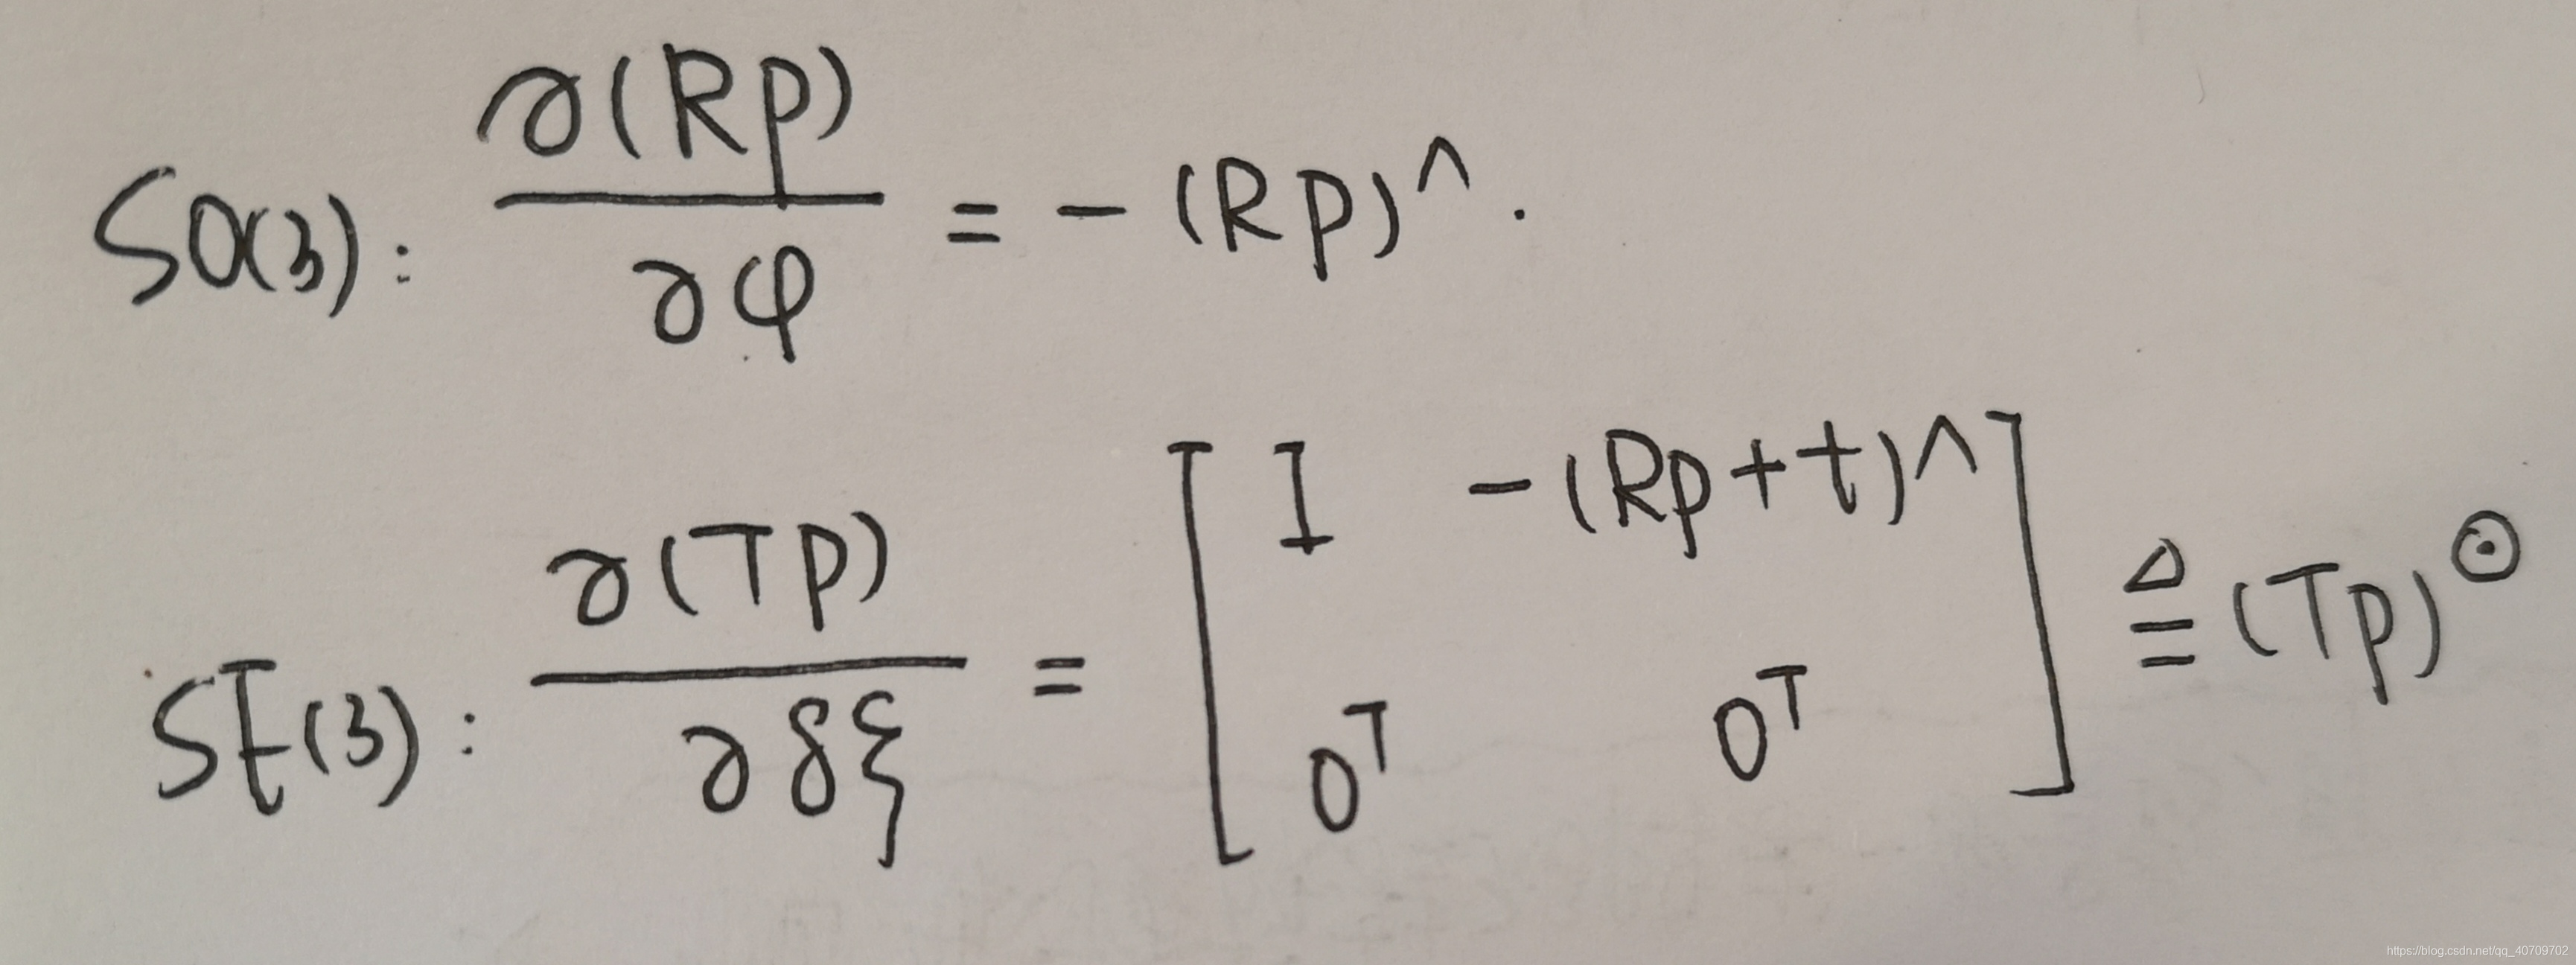 SO(3): ∂(Rp)/∂φ = -(Rp)^.
SE(3): ∂(Tp)/∂δξ = [ I -(Rp+t)^ ; 0^T 0^T ] ≜ (Tp)^⊙
https://blog.csdn.net/qq_40709702